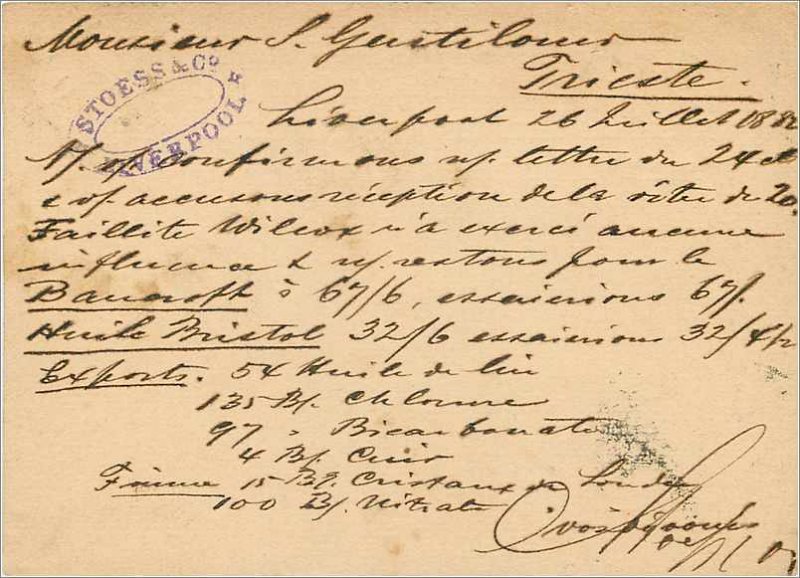 Monsieur S. Gentilomo
Trieste.
STOESS & Co
LIVERPOOL
Liverpool 26 Juillet 188
confirmons letter du 24
& accusons réception de la vôtre du 20.
Faillite Wilcox n'a exercé aucune
influence & restons pour le
Bancroft à 67/6, essaierions 67/.
Huile Bristol 32/6 essaierions 32/4½
Exports. 54 Huile de lin
135 Bf. Chlorure
97 " Bicarbonate
4 Bf. Cuir
Fiume 15 Bf. Cristaux de
100 Bf. Nitrate